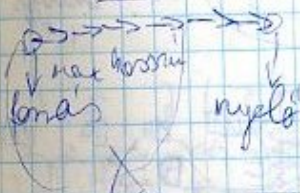 max hosszú
forrás nyelő